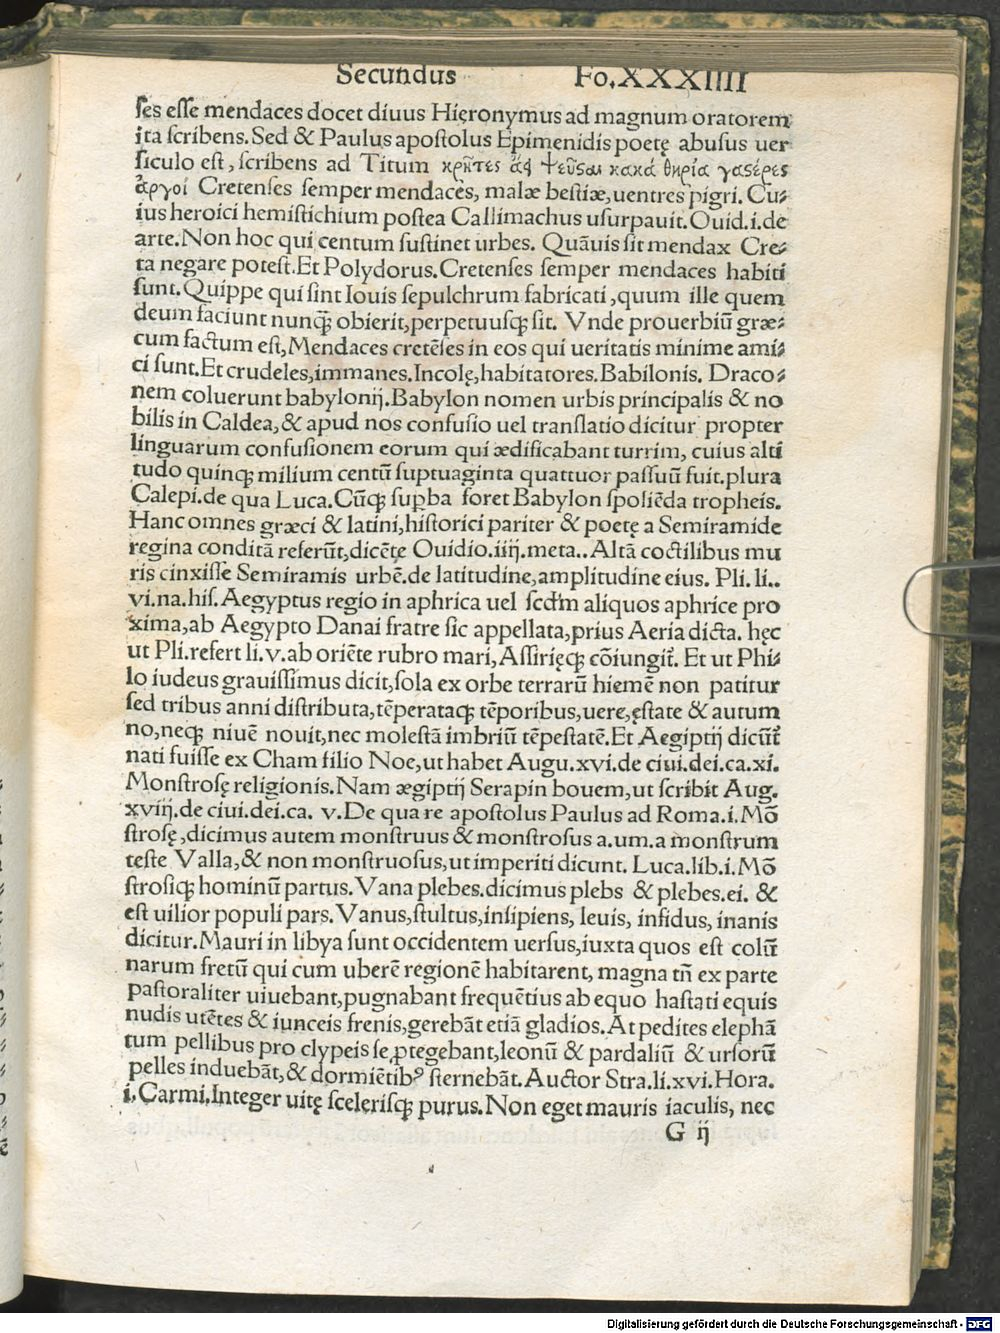 Secundus Fo.XXXIIII
ſes eſſe mendaces docet diuus Hieronymus ad magnum oratorem
ita ſcribens.Sed & Paulus apoſtolus Epimenidis poetę abuſus uer
ſiculo eſt, ſcribens ad Titum κρῆτες ἀεὶ ψεῦϛαι κακά θηρία γαϛέρες
ἀργοί Cretenſes ſemper mendaces, malæ beſtiæ,uentres pigri. Cu⸗
ius heroici hemiſtichium poſtea Callimachus uſurpauit.Ouid.i.de
arte.Non hoc qui centum ſuſtinet urbes. Quãuis ſit mendax Cre⸗
ta negare poteſt.Et Polydorus.Cretenſes ſemper mendaces habiti
ſunt.Quippe qui ſint Iouis ſepulchrum fabricati,quum ille quem
deum faciunt nunꝙ̃ obierit,perpetuuſqꝫ ſit. Vnde prouerbiũ græ⸗
cum factum eſt,Mendaces cretẽſes in eos qui ueritatis minime ami⸗
ci ſunt.Et crudeles,immanes.Incolę,habitatores.Babilonis. Draco⸗
nem coluerunt babylonij.Babylon nomen urbis principalis & no
bilis in Caldea,& apud nos confuſio uel tranſlatio dicitur propter
linguarum confuſionem eorum qui ædificabant turrim, cuius alti
tudo quinqꝫ milium centũ ſuptuaginta quattuor paſſuũ fuit.plura
Calepi.de qua Luca.Cũqꝫ ſuꝑba foret Babylon ſpoliẽda tropheis.
Hanc omnes græci & latini,hiſtorici pariter & poetę a Semiramide
regina conditã referũt,dicẽte Ouidio.iiij.meta.. Altã coctilibus mu
ris cinxiſſe Semiramis urbẽ.de latitudine,amplitudine eius. Pli. li..
vi.na.hiſ.Aegyptus regio in aphrica uel ſcd̃m aliquos aphrice pro
xima,ab Aegypto Danai fratre ſic appellata,prius Aeria dicta. hęc
ut Pli.refert li.v.ab oriẽte rubro mari,Aſſirięqꝫ cõiungit̃. Et ut Phi⸗
lo iudeus grauiſſimus dicit,ſola ex orbe terrarũ hiemẽ non patitur
ſed tribus anni diſtributa,tẽperataqꝫ tẽporibus,uere,ęſtate & autum
no,neqꝫ niuẽ nouit,nec moleſtã imbriũ tẽpeſtatẽ.Et Aegiptij dicũt̃
nati fuiſſe ex Cham filio Noe,ut habet Augu.xvi.de ciui.dei.ca.xi.
Monſtroſę religionis. Nam ægiptij Serapin bouem,ut ſcribit Aug.
xviij.de ciui.dei.ca. v.De qua re apoſtolus Paulus ad Roma.i.Mõ
ſtroſę,dicimus autem monſtruus & monſtroſus a.um.a monſtrum
teſte Valla,& non monſtruoſus,ut imperiti dicunt. Luca.lib.i.Mõ
ſtroſiqꝫ hominũ partus.Vana plebes.dicimus plebs & plebes.ei. &
eſt uilior populi pars.Vanus,ſtultus,inſipiens, leuis, infidus, inanis
dicitur.Mauri in libya ſunt occidentem uerſus,iuxta quos eſt colũ
narum fretũ qui cum uberẽ regionẽ habitarent, magna tñ ex parte
paſtoraliter uiuebant,pugnabant frequẽtius ab equo haſtati equis
nudis utẽtes & iunceis frenis,gerebãt etiã gladios. At pedites elephã
tum pellibus pro clypeis ſe ꝓtegebant,leonũ & pardaliũ & urſorũ
pelles induebãt,& dormiẽtibꝰ ſternebãt.Auctor Stra.li.xvi.Hora.
i.Carmi.Integer uitę ſceleriſqꝫ purus.Non eget mauris iaculis, nec
G ij
Digitalisierung gefördert durch die Deutsche Forschungsgemeinschaft - DFG